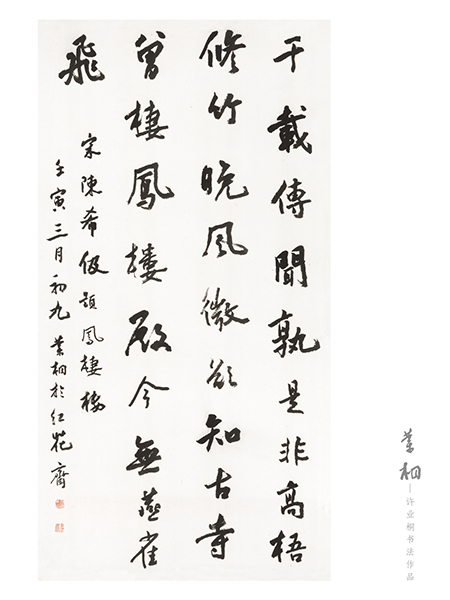 千載傳聞孰是非高梧
修竹晚風微欲知古寺
曾棲鳳樓殿今無燕雀
飛
宋陳希伋題鳳棲樓
壬寅三月初九業桐於红花齋
業桐—许业桐书法作品